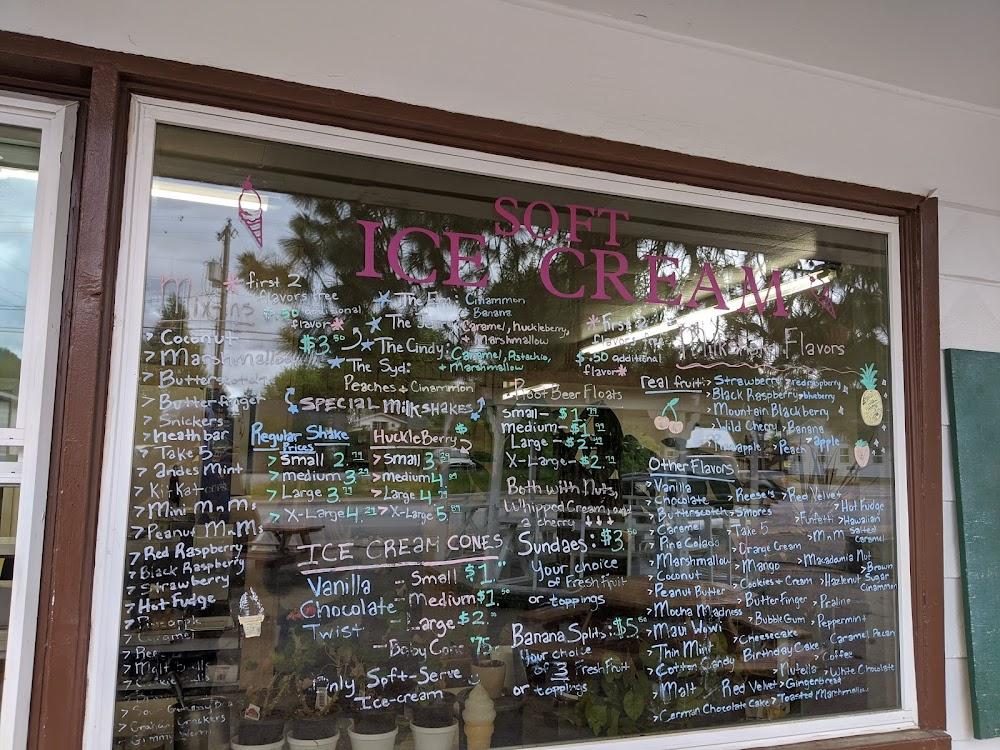 SOFT
ICE CREAM
first 2
flavors free
.50 additional
flavor
Coconut
Marshmallow
Butterscotch
Butterfinger
Snickers
heath bar
Take 5
andes Mint
Ki-Kat
Mini M n Ms
Peanut M n Ms
Red Raspberry
Black Raspberry
Strawberry
Hot Fudge
Caramel
$3.50
The Em: Cinammon
& Banana
Caramel, huckleberry,
+ Marshmallow
The Cindy: Caramel, Pistachio,
+ Marshmallow
The Syd:
Peaches + Cinammon
SPECIAL Milkshakes
Regular Shake
Prices
Small 2.
medium 3.
Large 3.
X-Large 4.
HuckleBerry
Small 3.
medium 4.
Large 4.
X-Large 5.
ICE CREAM CONES
Vanilla
Chocolate
Twist
Small $1.
Medium $1.
Large $2.
Baby Cone 75
Only Soft-Serve
Ice-cream
Root Beer Floats
Small - $1.
medium - $1.
Large - $2.
X-Large - $2.
Both with Nuts,
Whipped Cream, and
a cherry
Sundaes: $3.
Your choice
of Fresh Fruit
or toppings
Banana Splits: $5.
Your choice
of 3 Fresh Fruit
or toppings
First 2
flavors free
$.50 additional
flavor
Milkshake Flavors
real fruit: Strawberry redraspberry
Black Raspberry blueberry
Mountain Blackberry
Wild Cherry Banana
Pineapple Peach apple
Other Flavors
Vanilla
Chocolate Reese's Red Velvet
Butterscotch Smores Funfetti Hawaiian Hot Fudge
Caramel Take 5 M n M Salted Caramel
Pina Colada Orange Cream
Marshmallow Mango Macadamia Nut
Coconut Cookies + Cream Hazelnut Brown Sugar Cinammon
Peanut Butter Butterfinger Praline
Mocha Madness Bubble Gum Peppermint
Maui Wowi Cheesecake Caramel Pecan
Thin Mint Birthday Cake Coffee
Cotton Candy Nutella White Chocolate
Malt Red Velvet Gingerbread
German Chocolate Cake Toasted Marshmallow